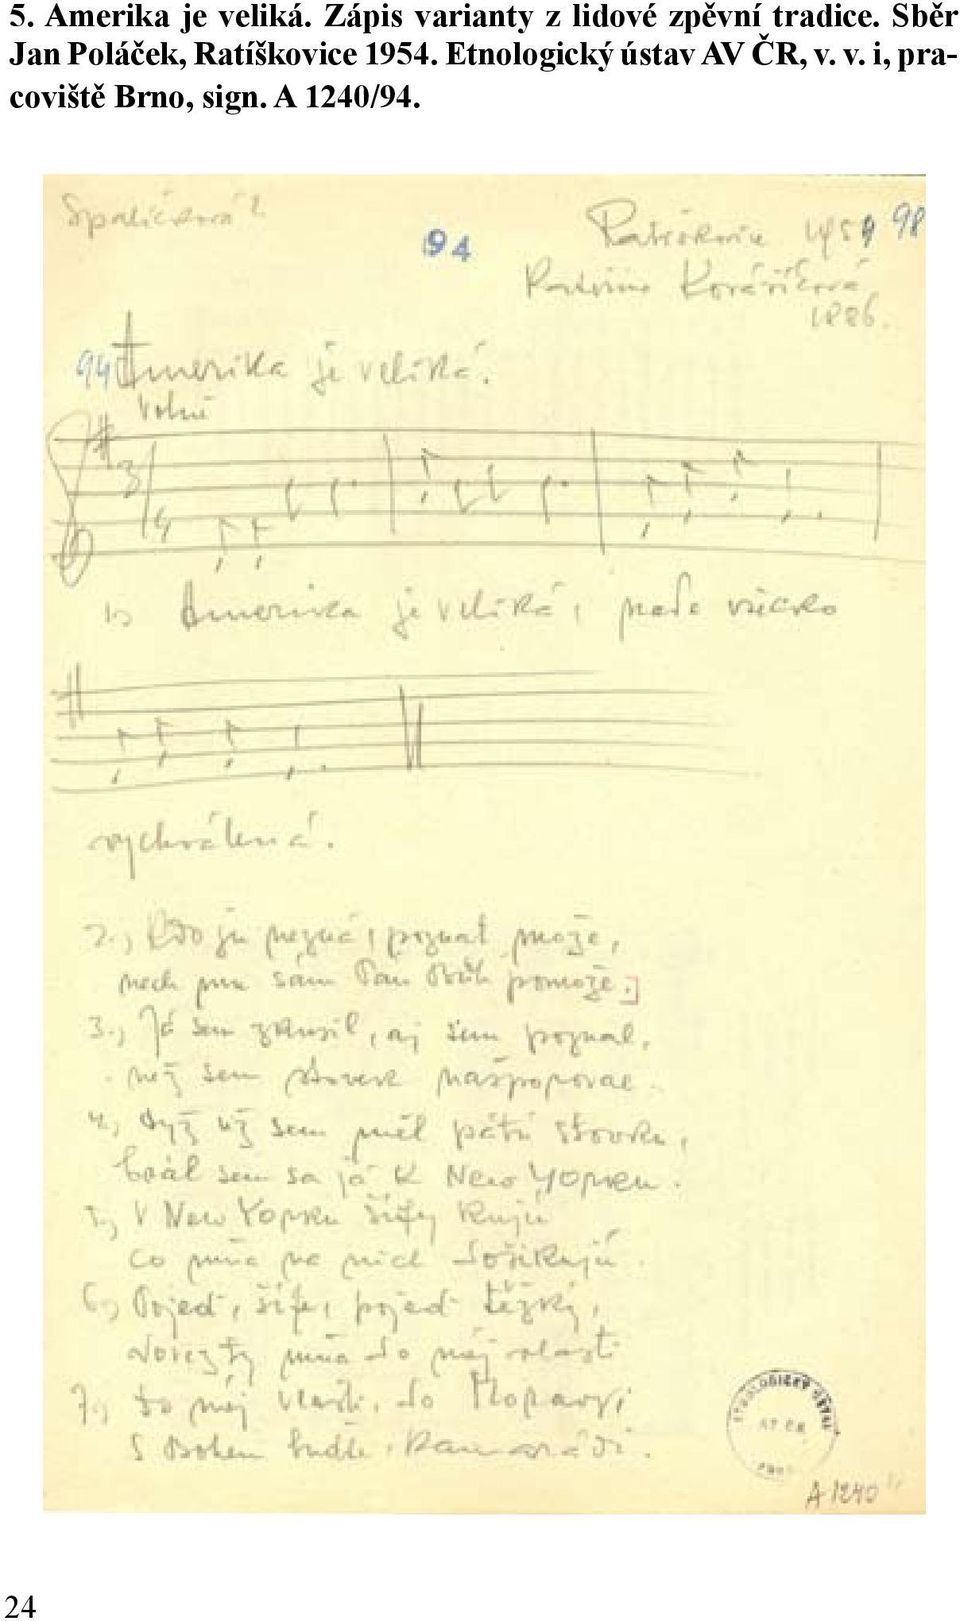 5. Amerika je veliká. Zápis varianty z lidové zpěvní tradice. Sběr
Jan Poláček, Ratíškovice 1954. Etnologický ústav AV ČR, v. v. i, pra-
coviště Brno, sign. A 1240/94.
94
Ratíškovice 1954 98
Kováříková
1886.
94 Amerika je veliká.
Volně
3
4
1) Amerika je veliká, přeca všecko
vychválená.
2.) Kdo ju nezná, poznat može,
nech mu sám Pán Bůh pomože.
3.) Já sem zkusil, aj sem poznal,
než sem stovek našporoval.
4.) Dyž už sem měl pátú stovku,
brál sem sa já k New Yorku.
5.) V New Yorku šífy kujú
co mňa na nich došikujú.
6.) Pojeď, šífe, pojeď těžký,
dovez ty mňa do méj vlasti
7.) do méj vlasti, do Moravy,
S Bohem buďte, kamarádi.
ETNOLOGICKÝ ÚSTAV
AV ČR
A 1240
24